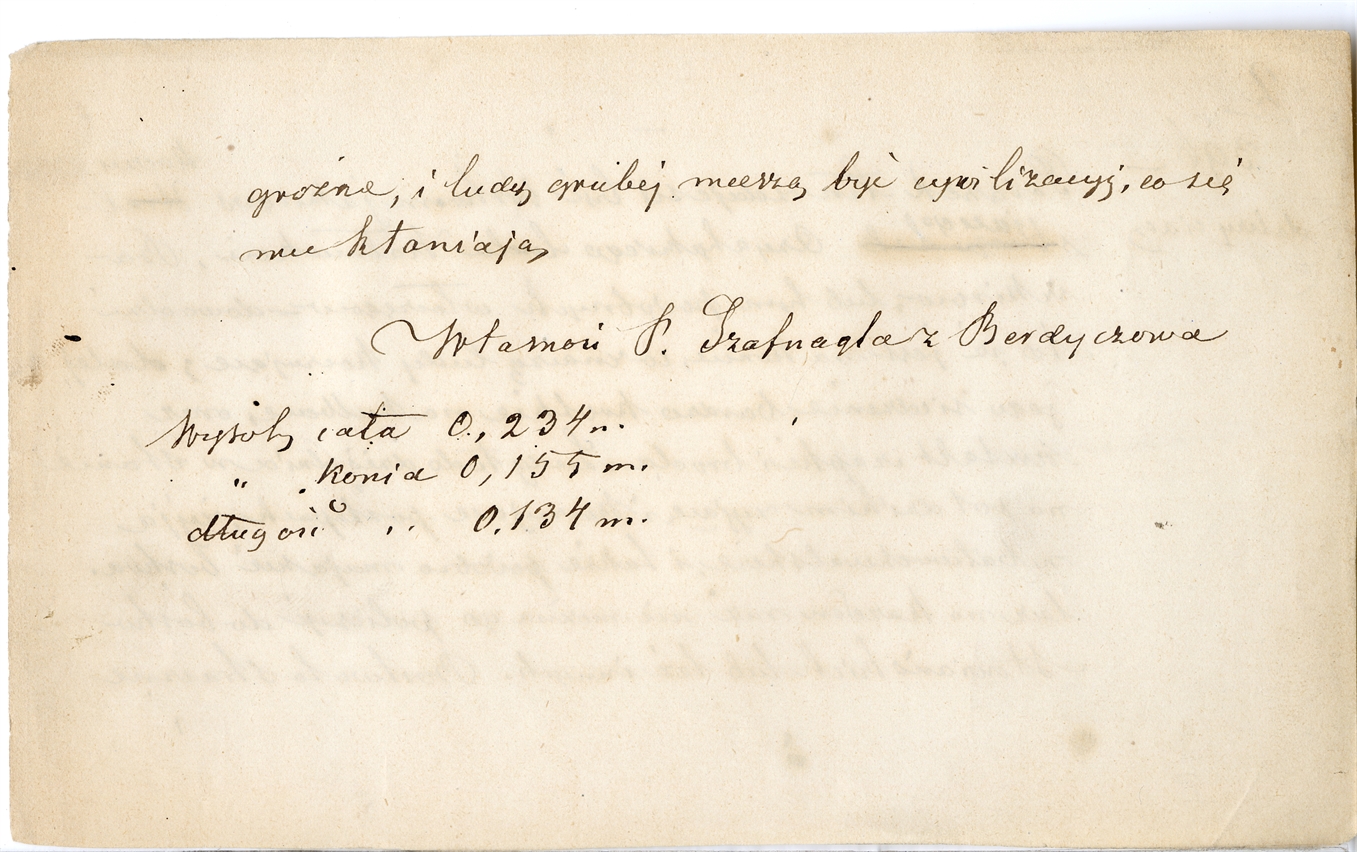 groźne, i ludy grubéj muszą być cywilizacyj, co się
mu kłaniają
Własność P. Szafnagla z Berdyczowa
Wysok, cała 0,234 m.
„ konia 0,155 m.
długość „ 0,134 m.